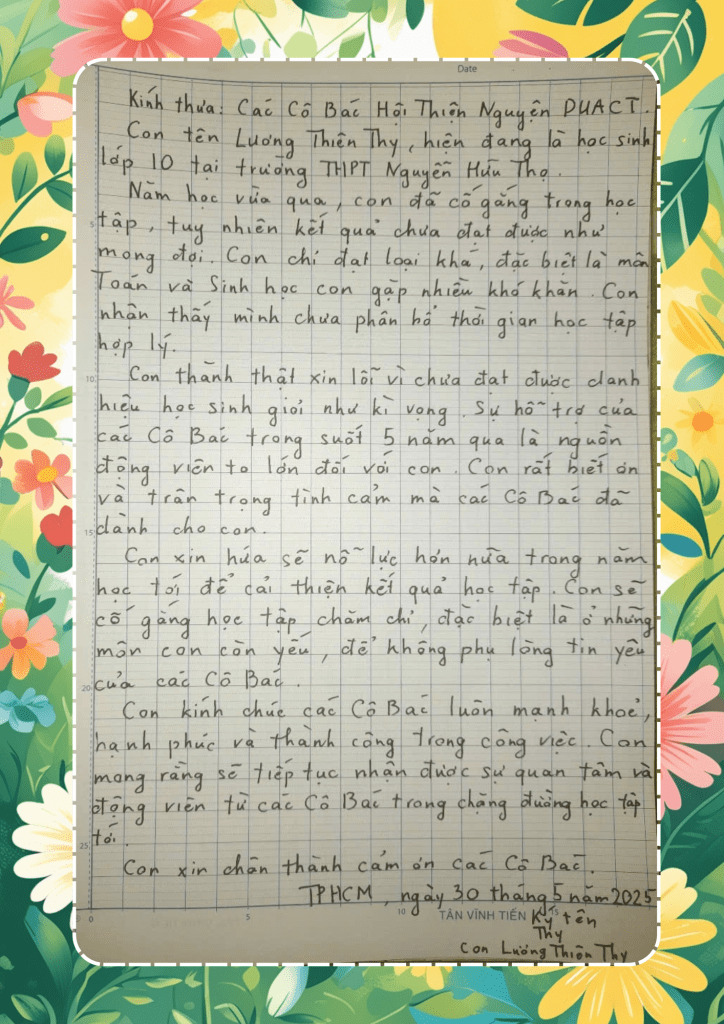 Date
Kính thưa: Các Cô Bác Hội Thiện Nguyện DUACT.
Con tên Lương Thiên Thy, hiện đang là học sinh
lớp 10 tại trường THPT Nguyễn Hữu Thọ.
Năm học vừa qua, con đã cố gắng trong học
5
tập, tuy nhiên kết quả chưa đạt được như
mong đợi. Con chỉ đạt loại khá, đặc biệt là môn
Toán và Sinh học con gặp nhiều khó khăn. Con
nhận thấy mình chưa phân bổ thời gian học tập
hợp lý.
10
Con thành thật xin lỗi vì chưa đạt được danh
hiệu học sinh giỏi như kì vọng. Sự hỗ trợ của
các Cô Bác trong suốt 5 năm qua là nguồn
động viên to lớn đối với con. Con rất biết ơn
và trân trọng tình cảm mà các Cô Bác đã
15
dành cho con.
Con xin hứa sẽ nỗ lực hơn nữa trong năm
học tới để cải thiện kết quả học tập. Con sẽ
cố gắng học tập chăm chỉ, đặc biệt là ở những
môn con còn yếu, để không phụ lòng tin yêu
20
của các Cô Bác.
Con kính chúc các Cô Bác luôn mạnh khoẻ,
hạnh phúc và thành công trong công việc. Con
mong rằng sẽ tiếp tục nhận được sự quan tâm và
động viên từ các Cô Bác trong chặng đường học tập
25
tới.
Con xin chân thành cảm ơn các Cô Bác.
TPHCM, ngày 30 tháng 5 năm 2025
0 5 10 TÂN VĨNH TIẾN Ký tên
Thy
Con Lương Thiên Thy